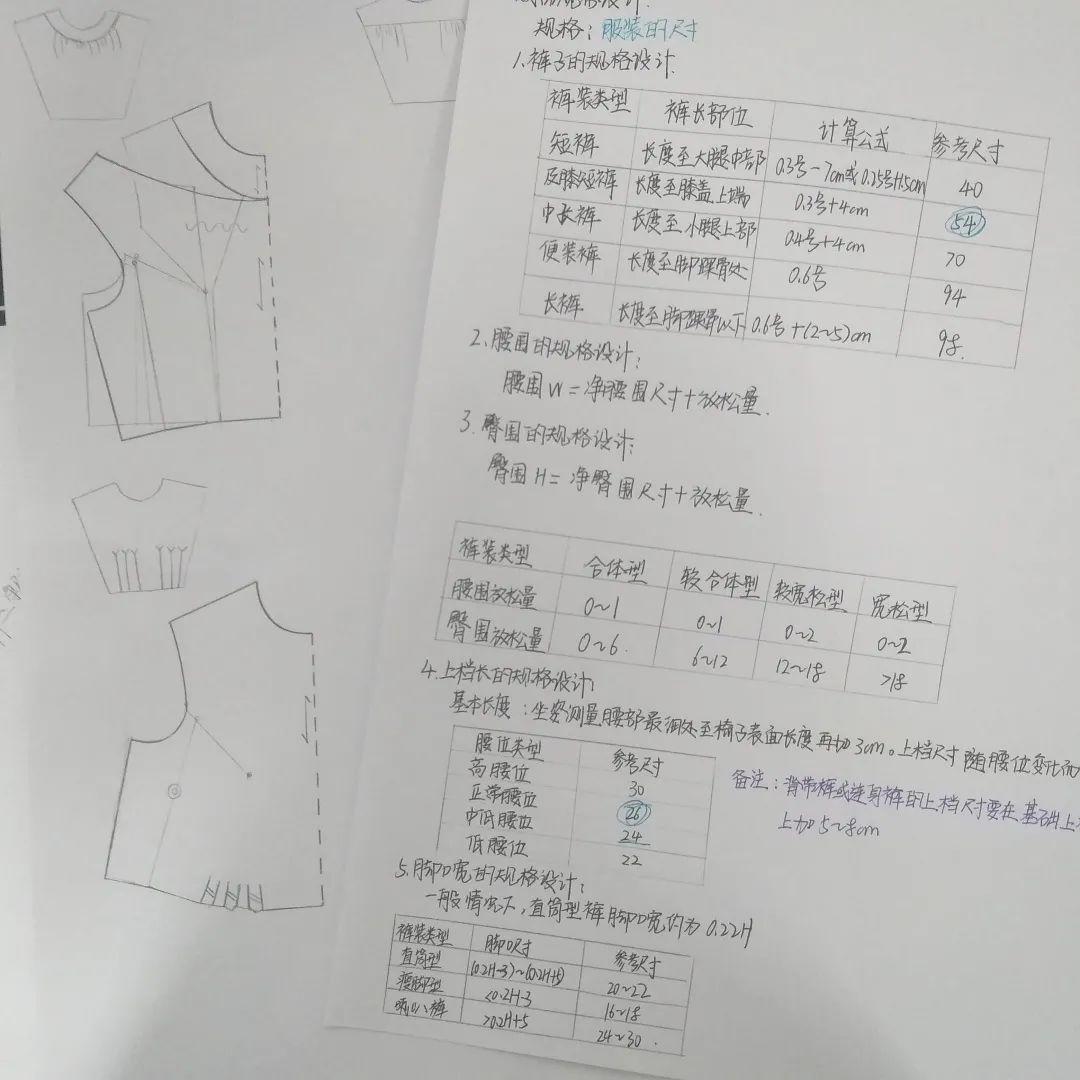 规格：服装的尺寸
1.裤子的规格设计.
裤装类型 裤长部位 计算公式 参考尺寸
短裤 长度至大腿中部 0.3号-7cm或0.25号+1.5cm 40
及膝短裤 长度至膝盖上端 0.3号+4cm 54
中长裤 长度至小腿上部 0.4号+4cm 70
便装裤 长度至脚踝骨处 0.6号 94
长裤 长度至脚踝骨以下 0.6号+(2~5)cm 98.
2.腰围的规格设计：
腰围W=净腰围尺寸+放松量.
3.臀围的规格设计：
臀围H=净臀围尺寸+放松量.
裤装类型 合体型 较合体型 较宽松型 宽松型
腰围放松量 0~1 0~1 0~2 0~2
臀围放松量 0~6. 6~12 12~18 >18
4.上裆长的规格设计：
基本长度：坐姿测量腰部最凹处至椅子表面长度再加3cm。上裆尺寸随腰位变化而
腰位类型 参考尺寸
高腰位 30
正常腰位 26
中低腰位 24
低腰位 22
备注：背带裤或连身裤的上裆尺寸要在基础上
上加5~8cm
5.脚口宽的规格设计：
一般情况下，直筒型裤脚口宽约为0.22H
裤装类型 脚口尺寸 参考尺寸
直筒型 (0.2H-3)~(0.2H+5) 20~22
瘦脚型 <0.2H-3 16~18
喇叭裤 >0.2H+5 24~30.